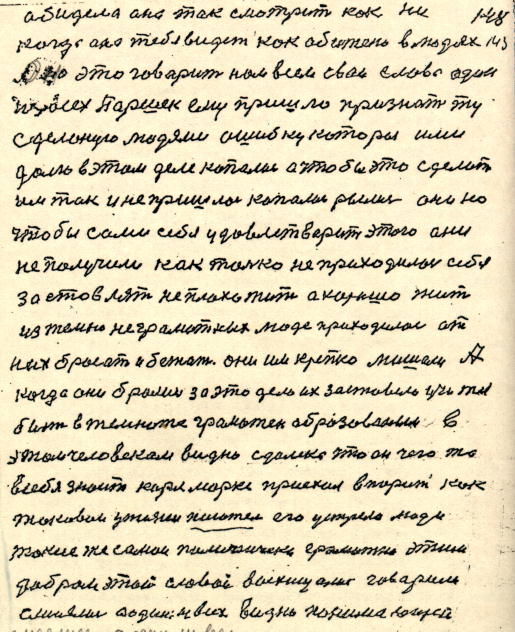 обидела она так смотрит как ни 148
когда она тебя видет как обижено в людях 143
это говарит нам всем свои слова один
из всех Паршек ему пришло признат ту
сделоную людями ошибку которы или
долго в этом деле копалис а чтобы это сделат
им так и не пришлос копалис рылис они но
чтобы сами себя удовлетварит этого они
не получили как толко не приходилос себя
заставлят не плохо жит а хорошо жит
из темно неграмотных люде приходилос от
них бросат и бежат. они им крепко мишали А
когда они бралис за это дело их заставело учится
быт в темноте грамотен образованым в
этом человекам видно сделано что он чего то
в себя знаит карл маркс приехал в париж как
таковой ужизни писател его устрело люди
такие же самаи политически грамотно этим
добром этай словой восхищалис говарили
смиялис один из всех видно понимающей